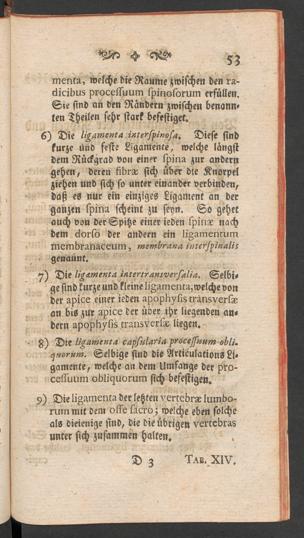 53
menta, welche die Raume zwischen den ra-
dicibus processuum spinosorum erfüllen.
Sie sind an den Rändern zwischen benann-
ten Theilen sehr stark befestiget.
6) Die ligamenta interspinosa. Diese sind
kurze und feste Ligamente, welche längst
dem Rückgrad von einer spina zur andern
gehen, deren fibræ sich über die Knorpel
ziehen und sich so unter einander verbinden,
daß es nur ein einziges Ligament an der
ganzen spina scheint zu seyn. So gehet
auch von der Spitze einer ieden spinæ nach
dem dorso der andern ein ligamentum
membranaceum, membrana interspinalis
genannt.
7) Die ligamenta intertransversalia. Selbi-
ge sind kurze und kleine ligamenta, welche von
der apice einer ieden apophysis transversæ
an bis zur apice der über ihr liegenden an-
dern apophysis transversæ liegen.
8) Die ligamenta capsularia processuum obli-
quorum. Selbige sind die Articulations Li-
gamente, welche an dem Umfange der pro-
cessuum obliquorum sich befestigen.
9) Die ligamenta der letzten vertebræ lumbo-
rum mit dem osse sacro; welche eben solche
als dieienige sind, die die übrigen vertebras
unter sich zusammen halten.
D 3 TAB. XIV.